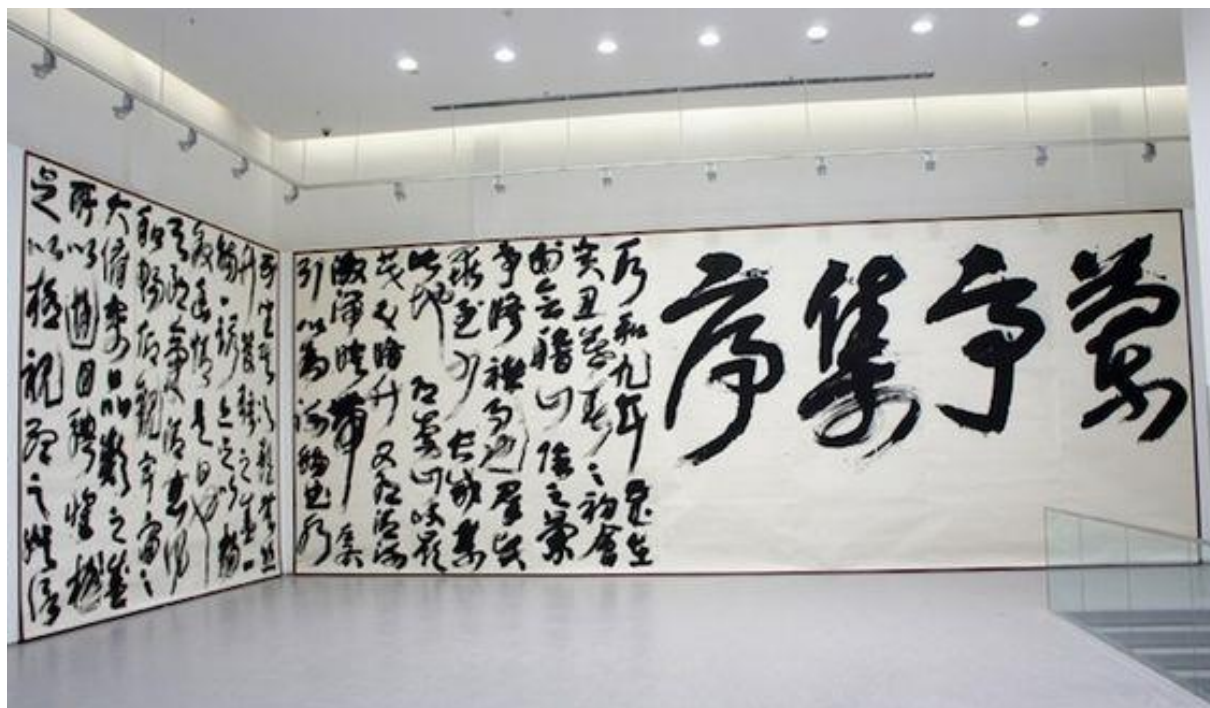 蘭亭集序
永和九年歲在
癸丑暮春之初會
於會稽山陰之蘭
亭脩禊事也羣賢
畢至少長咸集
此地有崇山峻嶺
茂林脩竹又有清流
激湍映帶左右
引以為流觴曲水
列坐其次雖無絲
竹管絃之盛一
觴一詠亦足以暢
敘幽情是日也
天朗氣清惠風
和暢仰觀宇宙之
大俯察品類之盛
所以遊目騁懷
足以極視聽之娛信